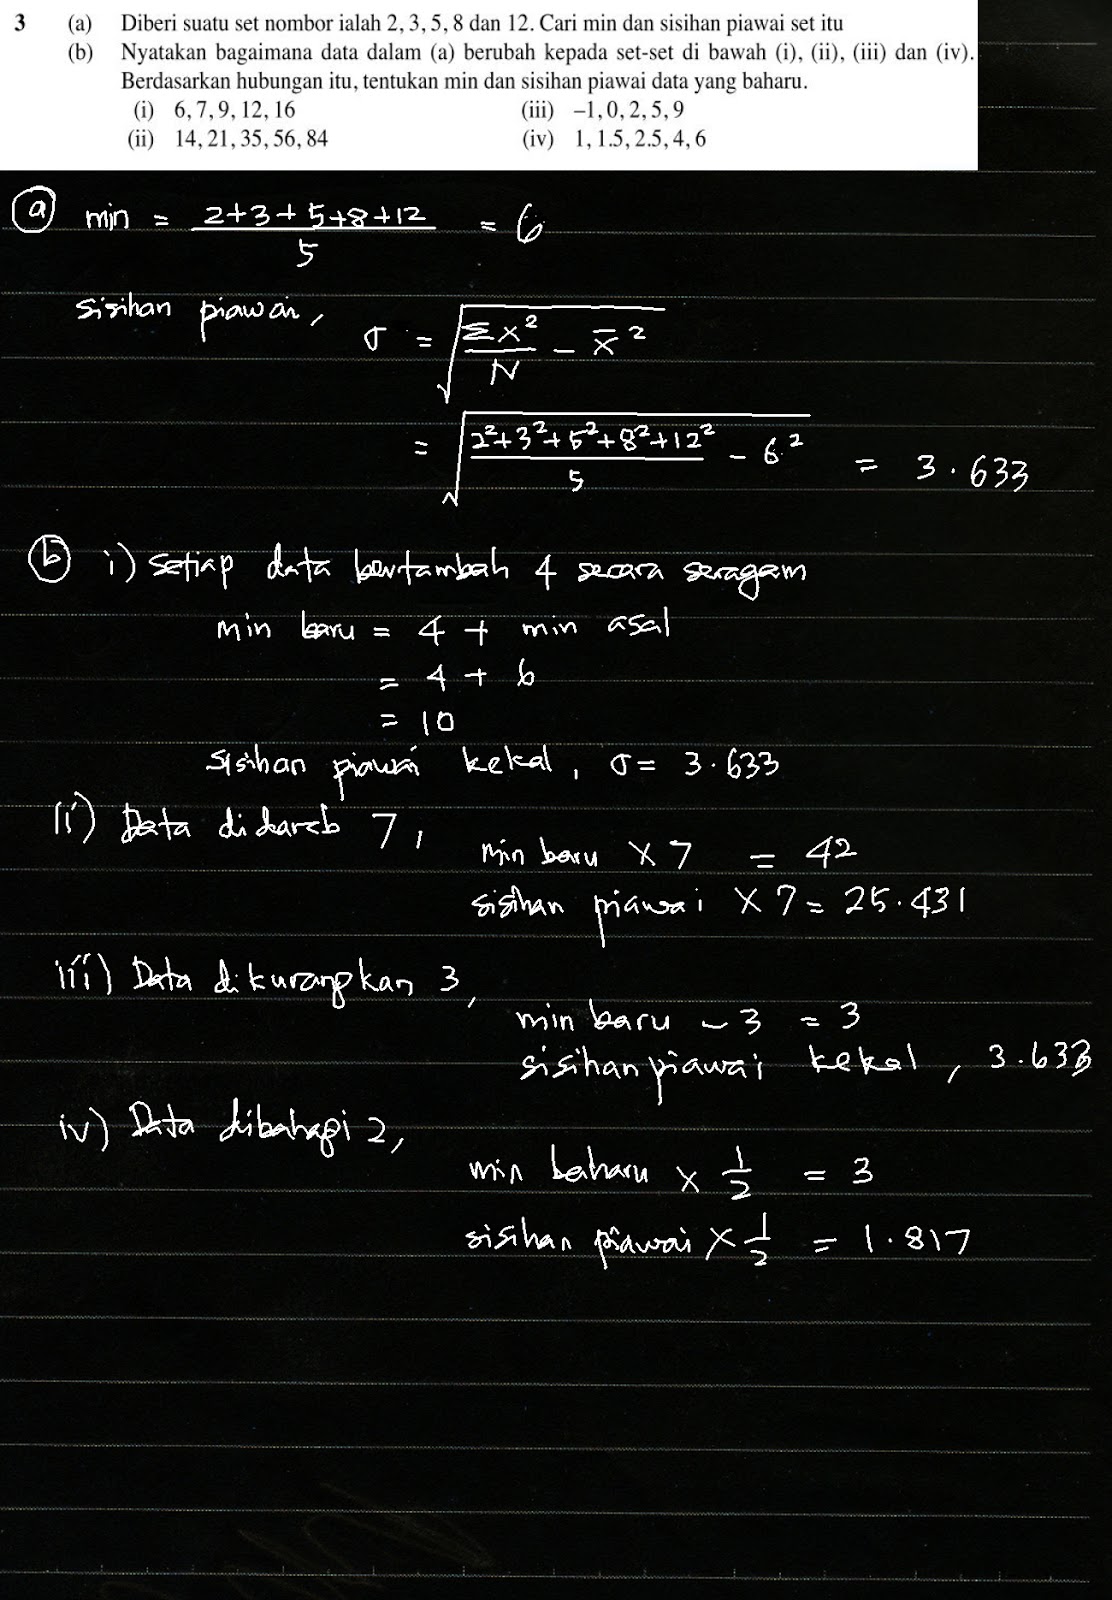 3 (a) Diberi suatu set nombor ialah 2, 3, 5, 8 dan 12. Cari min dan sisihan piawai set itu
(b) Nyatakan bagaimana data dalam (a) berubah kepada set-set di bawah (i), (ii), (iii) dan (iv).
Berdasarkan hubungan itu, tentukan min dan sisihan piawai data yang baharu.
(i) 6, 7, 9, 12, 16 (iii) –1, 0, 2, 5, 9
(ii) 14, 21, 35, 56, 84 (iv) 1, 1.5, 2.5, 4, 6
(a) min = (2+3+5+8+12)/5 = 6
sisihan piawai, σ = √(Σx²/N − x̄²)
= √((2²+3²+5²+8²+12²)/5 − 6²) = 3.633
(b) i) setiap data bertambah 4 secara seragam
min baru = 4 + min asal
= 4 + 6
= 10
sisihan piawai kekal, σ = 3.633
ii) Data didarab 7,
min baru × 7 = 42
sisihan piawai × 7 = 25.431
iii) Data dikurangkan 3,
min baru − 3 = 3
sisihan piawai kekal, 3.633
iv) Data dibahagi 2,
min baharu × 1/2 = 3
sisihan piawai × 1/2 = 1.817